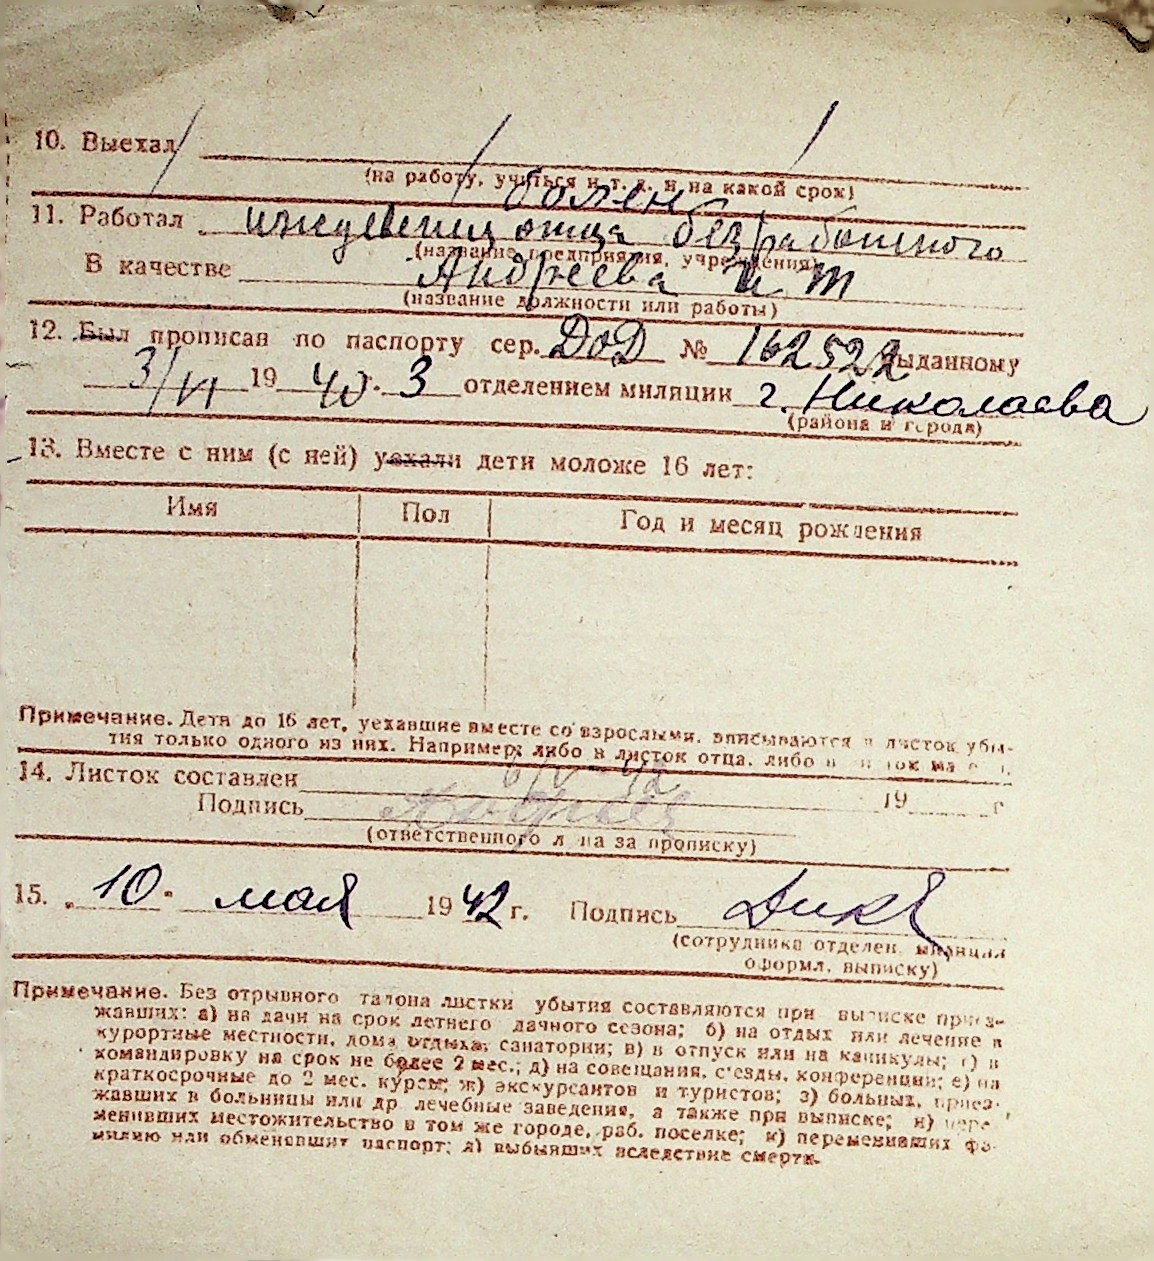 10. Выехал
(на работу, учиться и т. д. и на какой срок)
болен
11. Работал иждевениц отца безработного
(название предприятия, учреждения)
В качестве Андреева И Т
(название должности или работы)
12. Был прописан по паспорту сер. ДОД № 162522 выданному
3/VI 1940. 3 отделением милиции г. Николаева
(района и города)
13. Вместе с ним (с ней) уехали дети моложе 16 лет:
Имя Пол Год и месяц рождения
Примечание. Дети до 16 лет, уехавшие вместе со взрослыми, вписываются в листок убы-
тия только одного из них. Например: либо в листок отца, либо в
14. Листок составлен 6/V 42 19 г
Подпись
(ответственного за прописку)
15. „10" мая 1942 г. Подпись
(сотрудника отделен. милиции
оформл. выписку)
Примечание. Без отрывного талона листки убытия составляются при выписке приез-
жавших: а) на дачи на срок летнего дачного сезона; б) на отдых или лечение в
курортные местности, дома отдыха, санатории; в) в отпуск или на каникулы; г) в
командировку на срок не более 2 мес.; д) на совещания, с'езды, конференции; е) на
краткосрочные до 2 мес. курсы; ж) экскурсантов и туристов; з) больных, приез-
жавших в больницы или др лечебные заведения, а также при выписке; и) пере-
менивших местожительство в том же городе, раб. поселке; к) переменивших фа-
милию или обменявших паспорт; л) выбывших вследствие смерти.